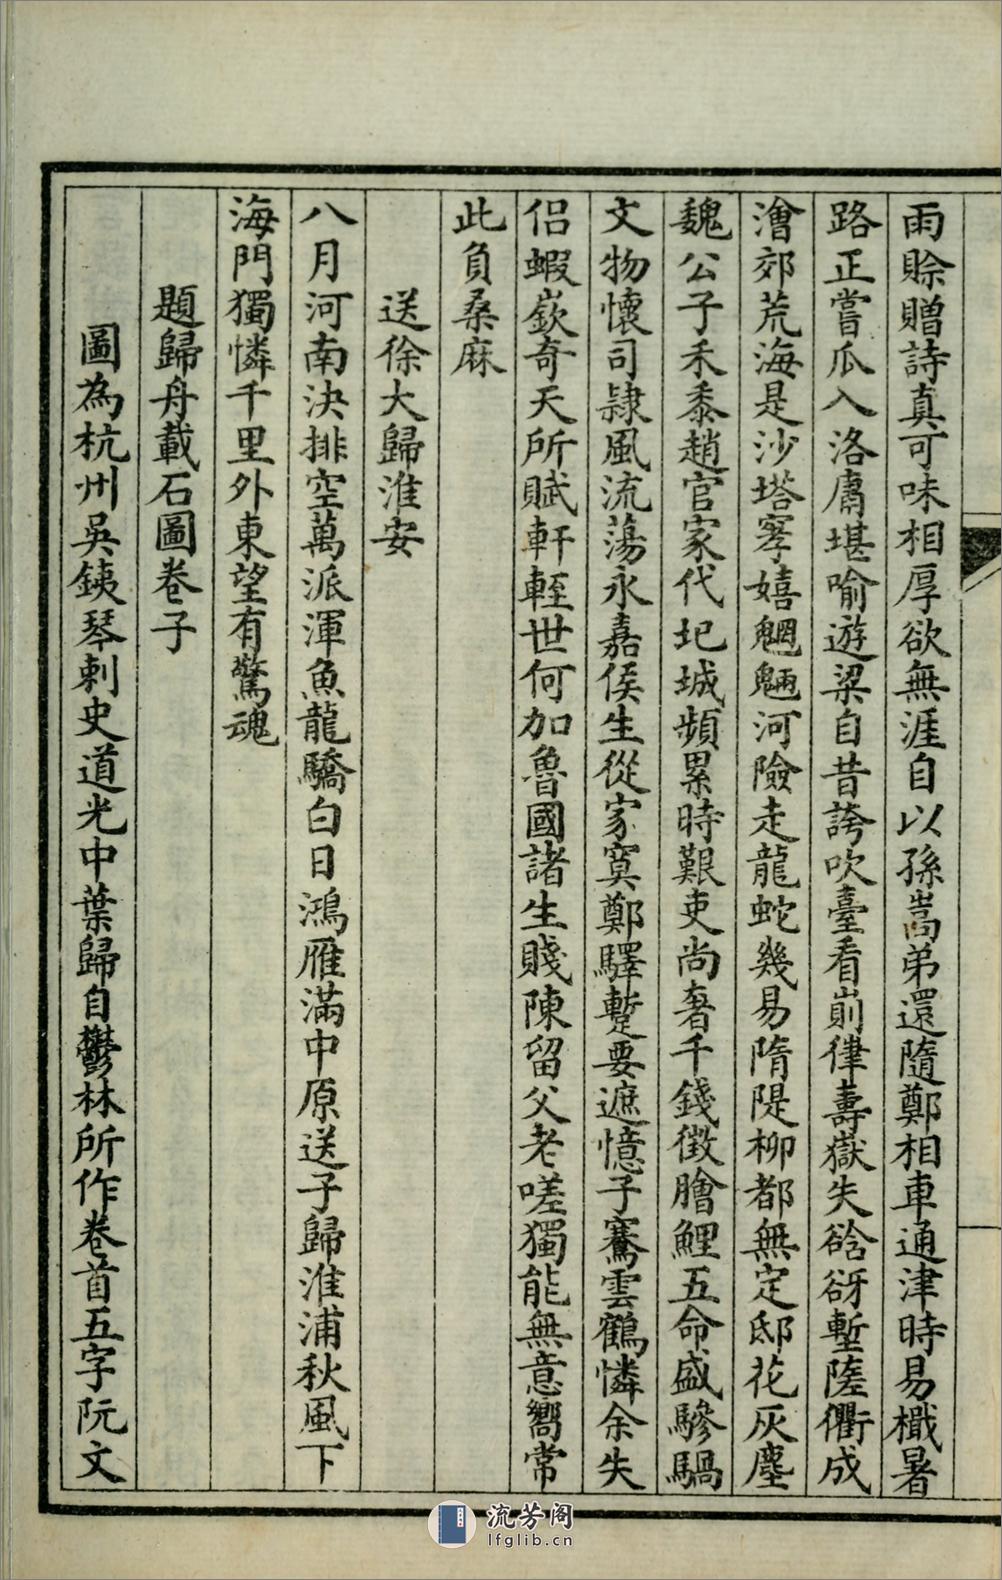 雨賒贈詩真可味相厚欲無涯自以孫嵩弟還隨鄭相車通津時易檝暑
路正嘗瓜入洛膺堪喻遊梁自昔誇吹臺看崱嵂壽嶽失谽谺塹隆衢成
澮郊荒海是沙塔寥嬉魍魎河險走龍蛇幾易隋隄柳都無定邸花灰塵
魏公子禾黍趙官家代圮城頻累時艱吏尚奢千錢徵膾鯉五命盛驂騧
文物懷司隷風流蕩永嘉侯生從家寞鄭驛蹔要遮憶子騫雲鶴憐余失
侶蝦嶔奇天所賦軒輊世何加魯國諸生賤陳留父老嗟獨能無意嚮常
此負桑麻
送徐大歸淮安
八月河南決排空萬派渾魚龍驕白日鴻雁滿中原送子歸淮浦秋風下
海門獨憐千里外東望有驚魂
題歸舟載石圖卷子
圖為杭州吳銕琴刺史道光中葉歸自鬱林所作卷首五字阮文
流芳阁
lfglib.cn